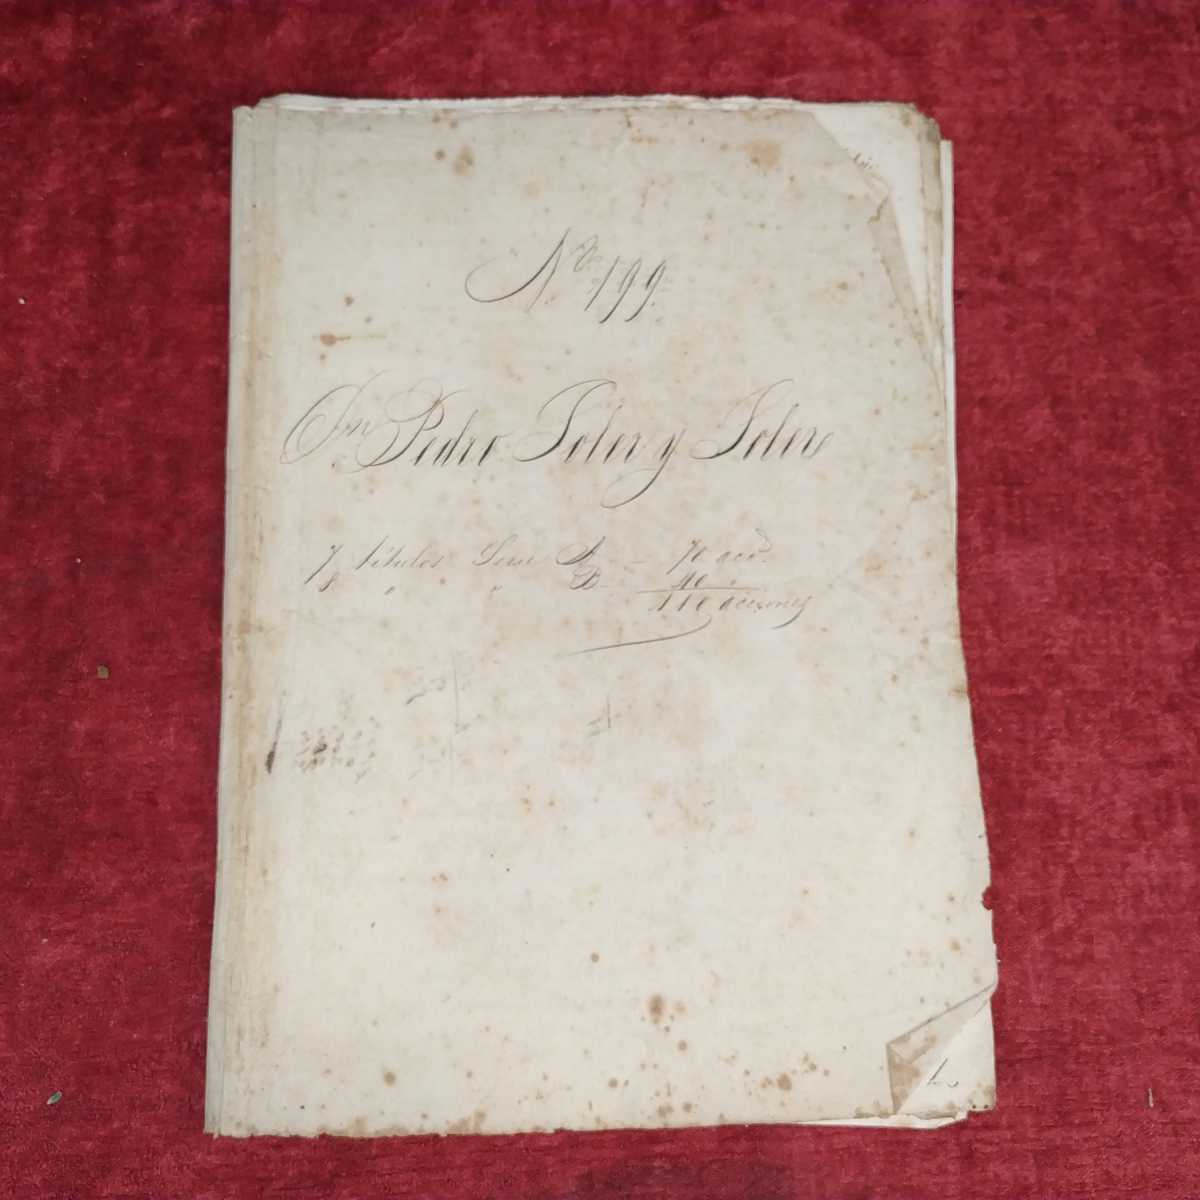 N.º 199.
Dn Pedro Soler y Soler
7 títulos Serie A — 70 acc.s
8 " " B — 40 "
110 acciones